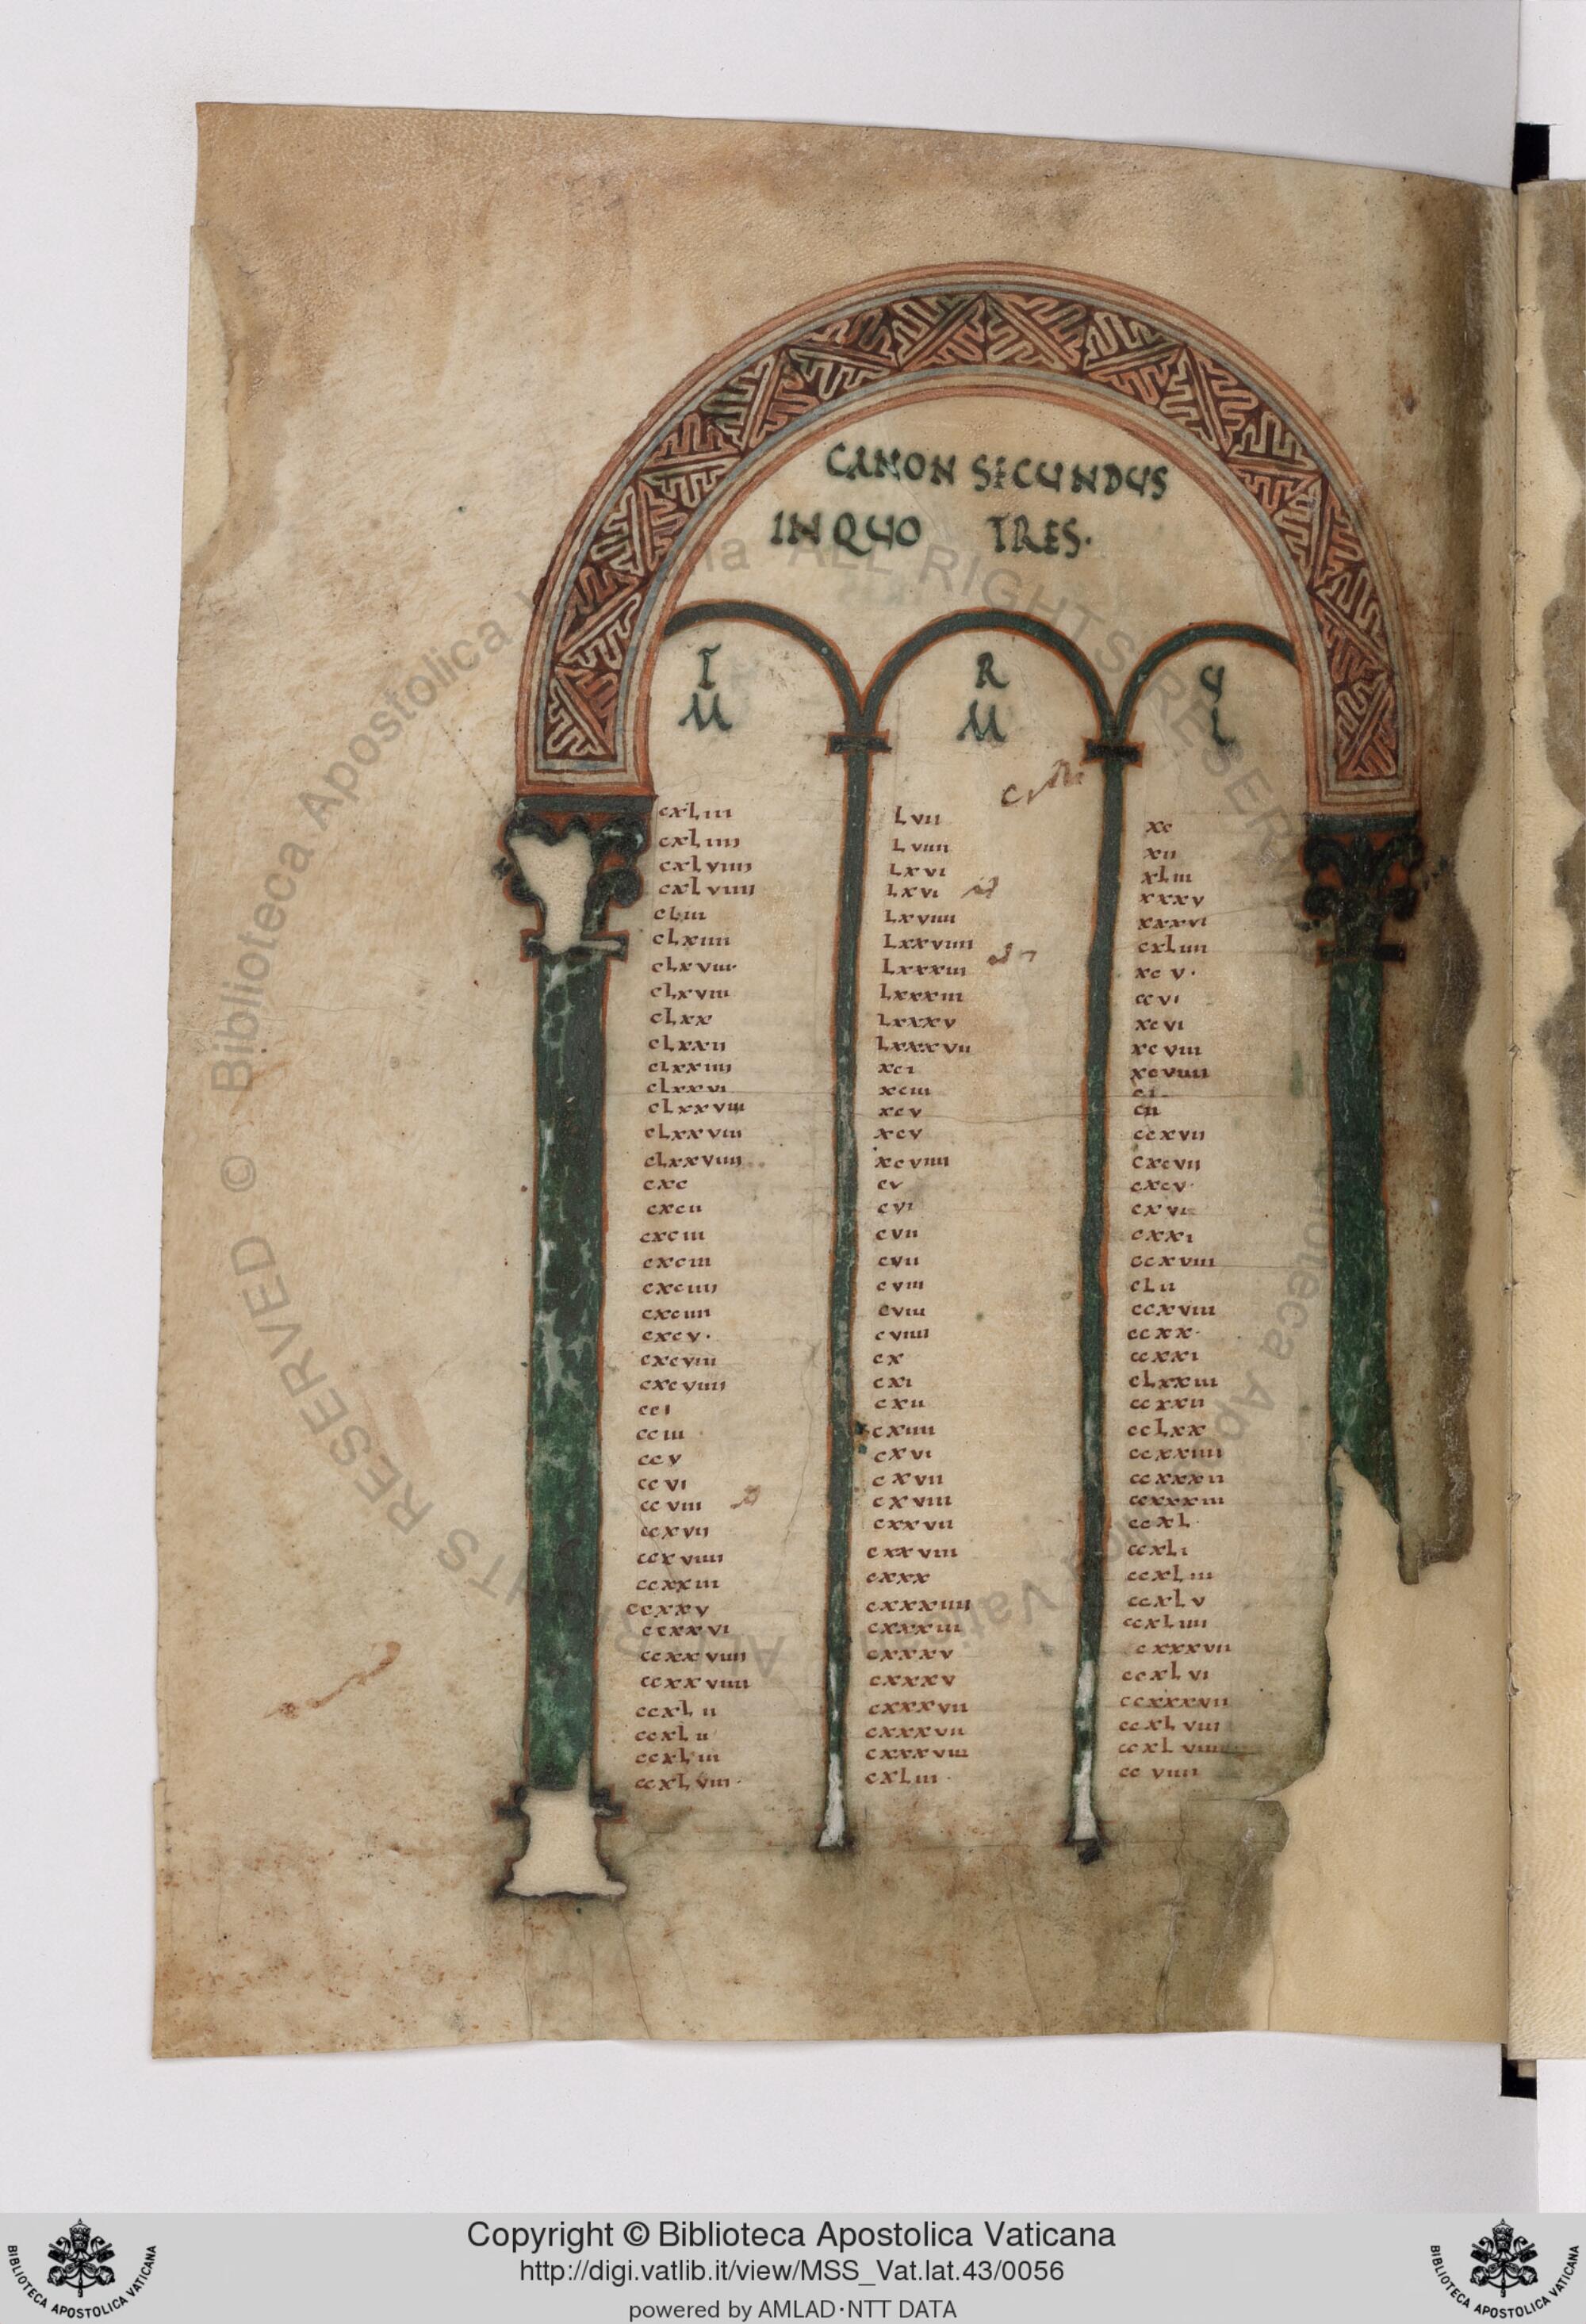 CANON SECUNDUS
IN QUO TRES·
I R U
M M L
cxliii lvii xc
cxliiii lviiii xii
cxlviiii lxvi xliii
cxlviiii lxvi xxxv
cliii lxviiii xxxvi
clxiiii lxxviiii cxliiii
clxviii· lxxxiii xcv·
clxviii lxxxiii ccvi
clxx lxxxv xcvi
clxxii lxxxvii xcviii
clxxiiii xci xcviiii
clxxvi xciii ci
clxxviii xcv cii
clxxviii xcv ccxvii
clxxviiii xcviiii cxcvii
cxc cv cxcv·
cxcii cvi cxvi
cxciii cvii cxxi
cxciii cvii ccxviii
cxciiii cviii clii
cxciiii cviii ccxviii
cxcv· cviiii ccxx·
cxcviii cx ccxxi
cxcviiii cxi clxxiii
cci cxii ccxxii
cciii cxiiii cclxx
ccv cxvi ccxxiiii
ccvi cxvii ccxxxii
ccviii cxviii ccxxxiii
ccxvii cxxvii ccxl·
ccxviiii cxxviii ccxli
ccxxiii cxxx ccxliii
ccxxv cxxxiiii ccxlv
ccxxvi cxxxiii ccxliiii
ccxxviiii cxxxv cxxxvii
ccxxviiii cxxxv ccxlvi
ccxlii cxxxvii ccxxxvii
ccxlii cxxxvii ccxlviii
ccxliii cxxxviii ccxlviiii
ccxlviii· cxliii· ccviiii
© Biblioteca Apostolica Vaticana ALL RIGHTS RESERVED
Copyright © Biblioteca Apostolica Vaticana
http://digi.vatlib.it/view/MSS_Vat.lat.43/0056
powered by AMLAD·NTT DATA
BIBLIOTECA APOSTOLICA VATICANA
BIBLIOTECA APOSTOLICA VATICANA